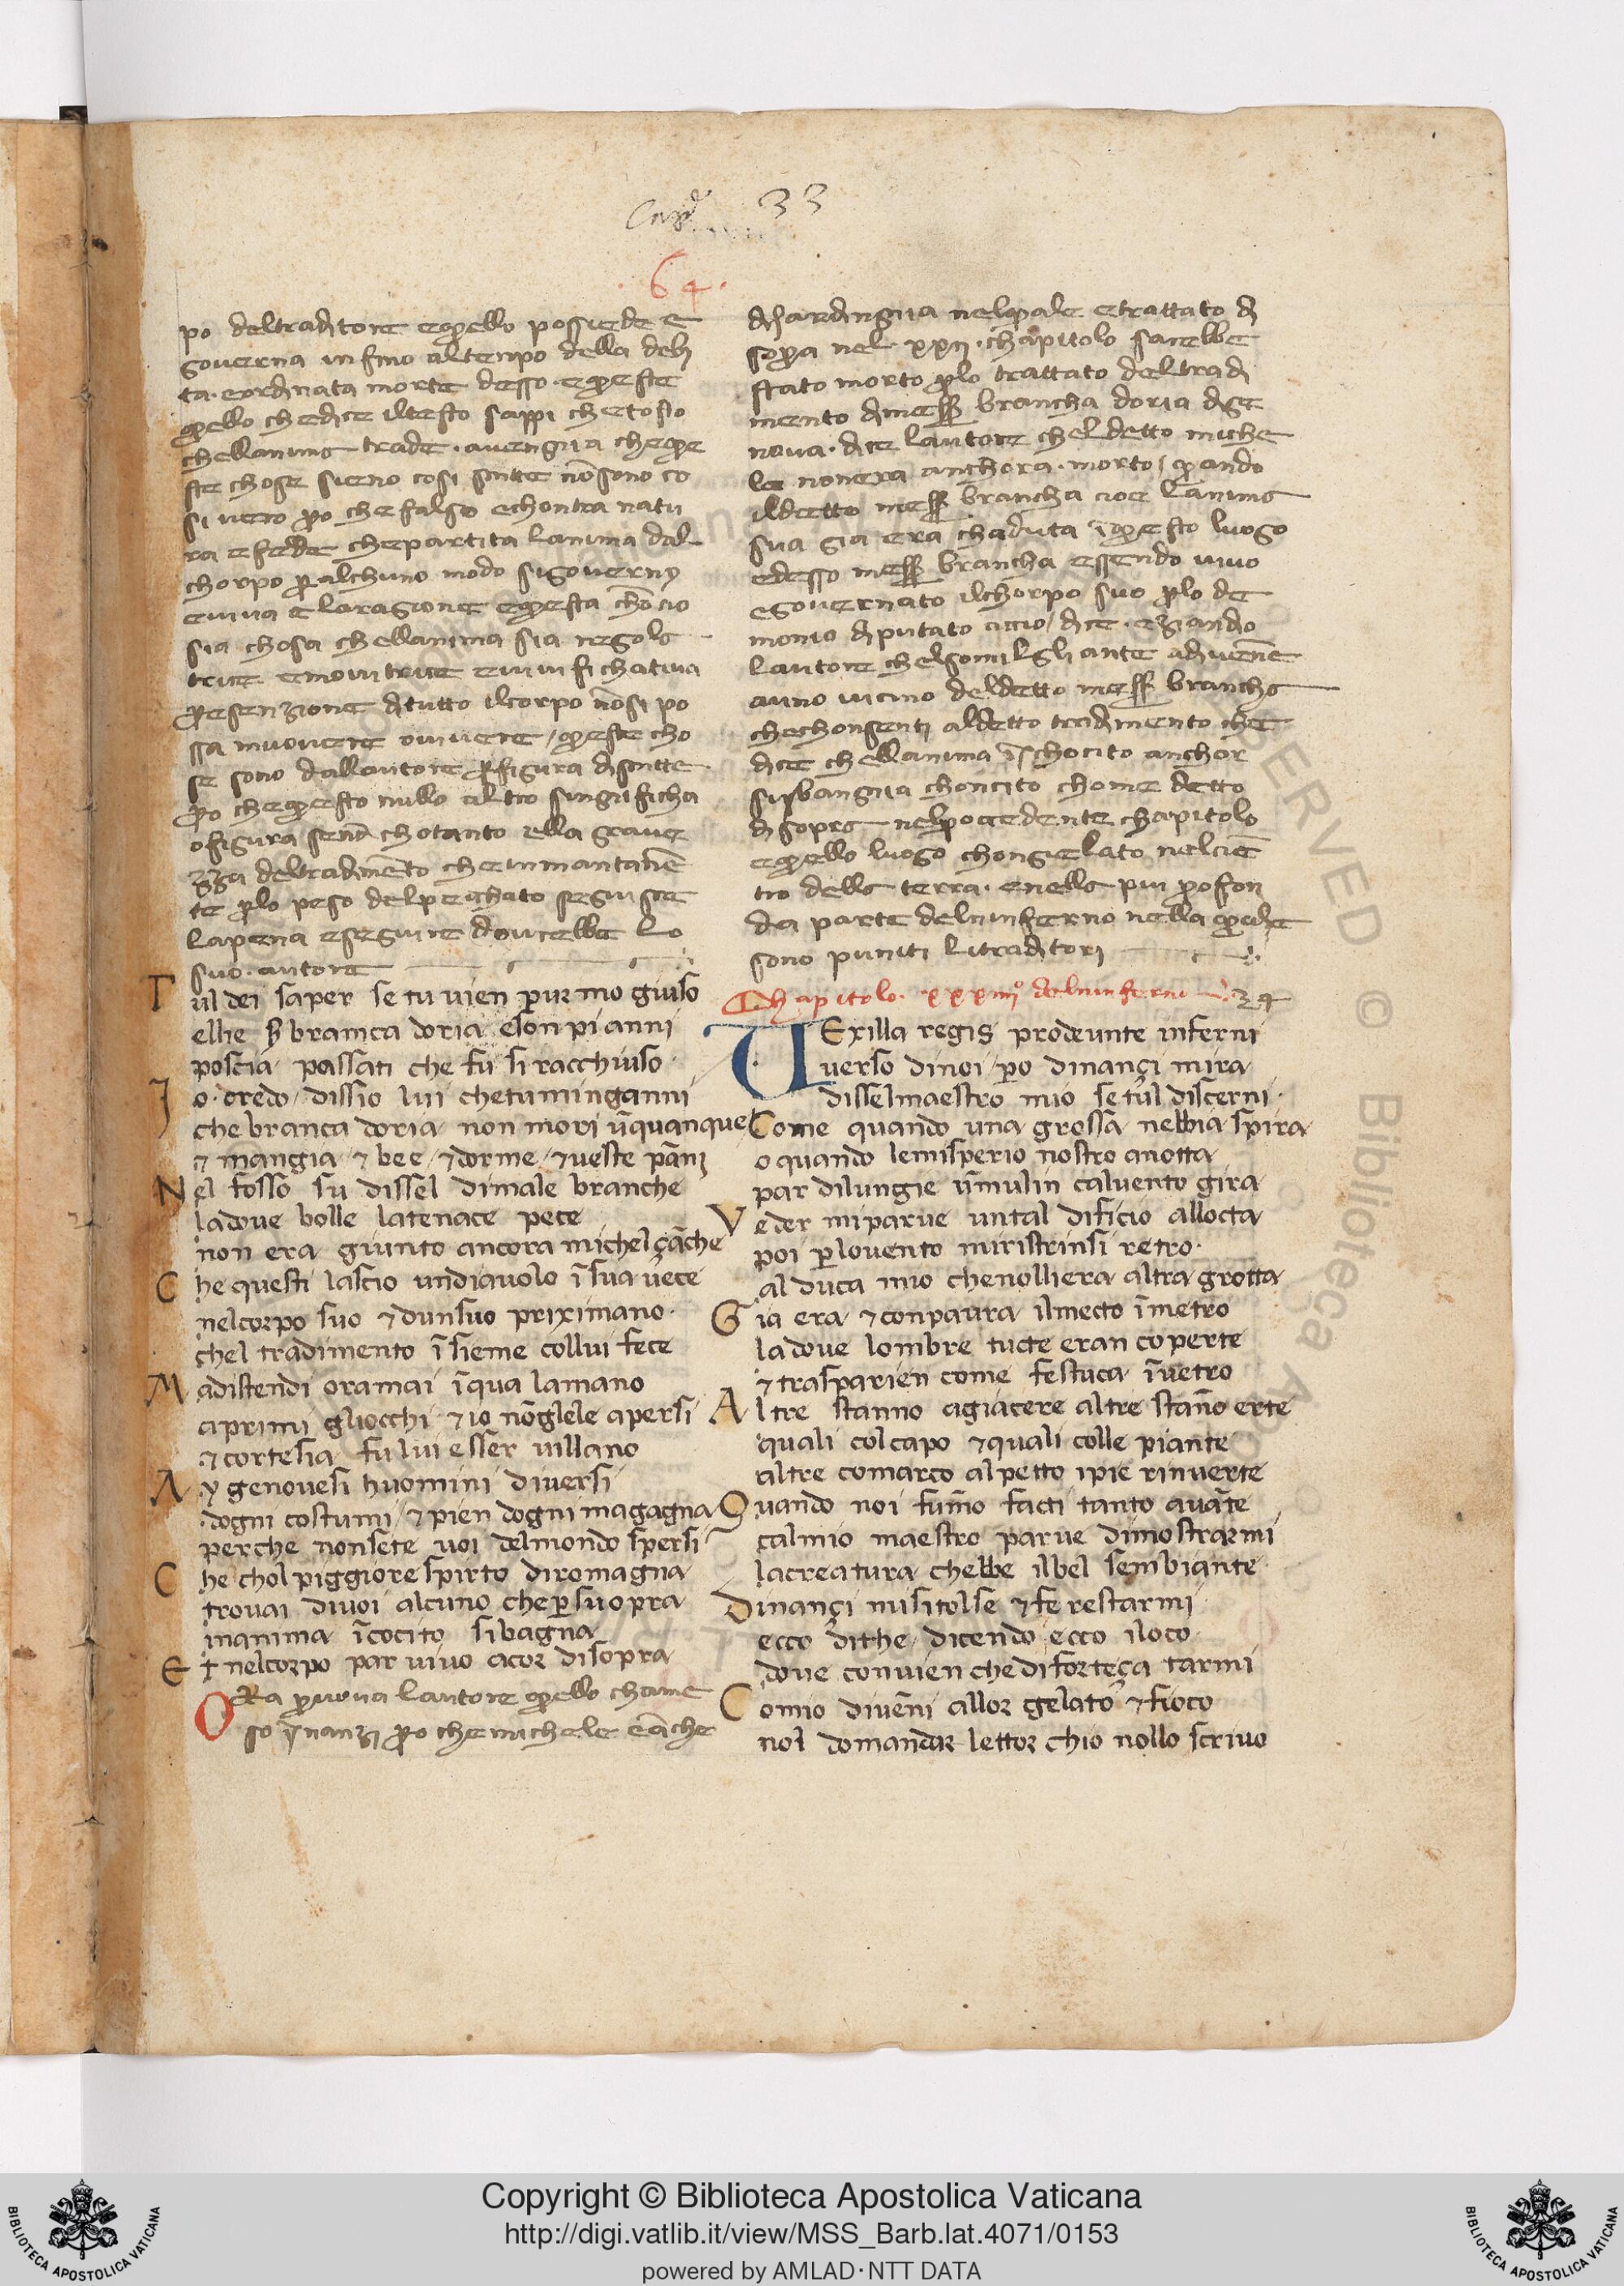 33
64.
po deltraditore equello possiede e
governa infino altempo della debi
ta. eordinata morte desso. equeste
quello chedice iltesto sappi chetosto
chellanima trade. avengnia cheque
ste chose sieno cosi scritte nōsono co
si vero pero che falso echontra natu
ra efede chepartita lanima dal
chorpo peralchuno modo sigoverny
eviva elaragione equesta chōcio
sia chosa chellanima sia regola
trice emovitrice evivifichativa
presenzione ditutto ilcorpo nōsi po
ssa muovere ovivere / queste cho
se sono dallautore perfigura discritte
pero chequesto nullo altro singnificha
ofigura senō chotanto ella grave
zza deltradimēto cheinmantanē
te perlo peso delpecchato seguisce
lapena eseguire dovrebbe lo
suo. autore
Tul dei saper se tu vien pur mo giuso
elli e ser branca doria eson pi anni
poscia passati che fu si racchiuso
Io. credo / dissio lui chetuminganni
che branca doria non mori ūquanque
⁊ mangia ⁊ bee ⁊ dorme / ⁊ veste pāni
Nel fosso su dissel dimale branche
ladove bolle latenace pece
non era giunto ancora michel çāche
Che questi lascio undiavolo ī sua vece
nelcorpo suo ⁊ dunsuo priximano.
chel tradimento īsieme collui fece
Madistendi oramai īqua lamano
aprimi gliocchi ⁊ io nōglele apersi
⁊ cortesia fu lui esser villano
Ay genovesi huomini diversi
dogni costumi / ⁊ pien dogni magagna
perche nonsete voi delmondo spersi
Che chol piggiore spirto diromagna
trovai divoi alcuno che persuopra
inanima īcocito sibagna
Et nelcorpo par vivo acor disopra
Ora pruova lautore quello chame
so īnanzi pero che michele çāche
disardingnia nelquale etrattato di
sopra nel xxij. chapitolo sarebbe
stato morto perlo trattato deltradi
mento dimesser brancha doria dige
nova. dice lautore cheldetto miche
le nonera anchora. morto / quando
ildetto messer brancha cioe lanima
sua gia era chaduta īquesto luogo
edesso messer brancha essendo vivo
egovernato ilchorpo suo perlo de
monio diputato accio / dice. ezandio
lautore chelsomilgliante adivēne
auno vicino deldetto messer brancha
chechonsenti aldetto tradimento che
dice chellanima ī chocito anchor
sisbangnia choncito chome detto
disopra nelprecedente chapitolo
equello luogo chongielato nelciē
tro della terra. enella piu profon
da parte delninferno nella quale
sono puniti litraditori
Chapitolo. xxxiiijº. delninferno 34
VExilla regis prodeunte inferni
verso dinoi / pero dinançi mira
disselmaestro mio setul discerni.
Come quando una grossa nebbia spira
o quando lemisperio nostro anotta
par dilungie ūmulin calvento gira
Veder miparve untal dificio allocta
poi perlovento miristrinsi retro.
al duca mio chenolliera altra grotta
Gia era ⁊ conpaura ilmecto īmetro
ladove lombre tucte eran coperte
⁊ trasparien come festuca īvetro
Altre stanno agiacere altre stāno erte
quali col capo ⁊ quali colle piante
altre comarco alpetto ipie rinverte
Quando noi fumo facti tanto avāte
calmio maestro parve dimostrarmi
lacreatura chebbe ilbel sembiante
Dinançi misitolse ⁊ fe restarmi
ecco dithe / dicendo / ecco iloco
dove convien che diforteça tarmi
Comio divēni allor gelato ⁊ fioco
nol domandar lettor chio nollo scrivo
RESERVED © Biblioteca Apo
Copyright © Biblioteca Apostolica Vaticana
http://digi.vatlib.it/view/MSS_Barb.lat.4071/0153
powered by AMLAD·NTT DATA
BIBLIOTECA APOSTOLICA VATICANA
BIBLIOTECA APOSTOLICA VATICANA